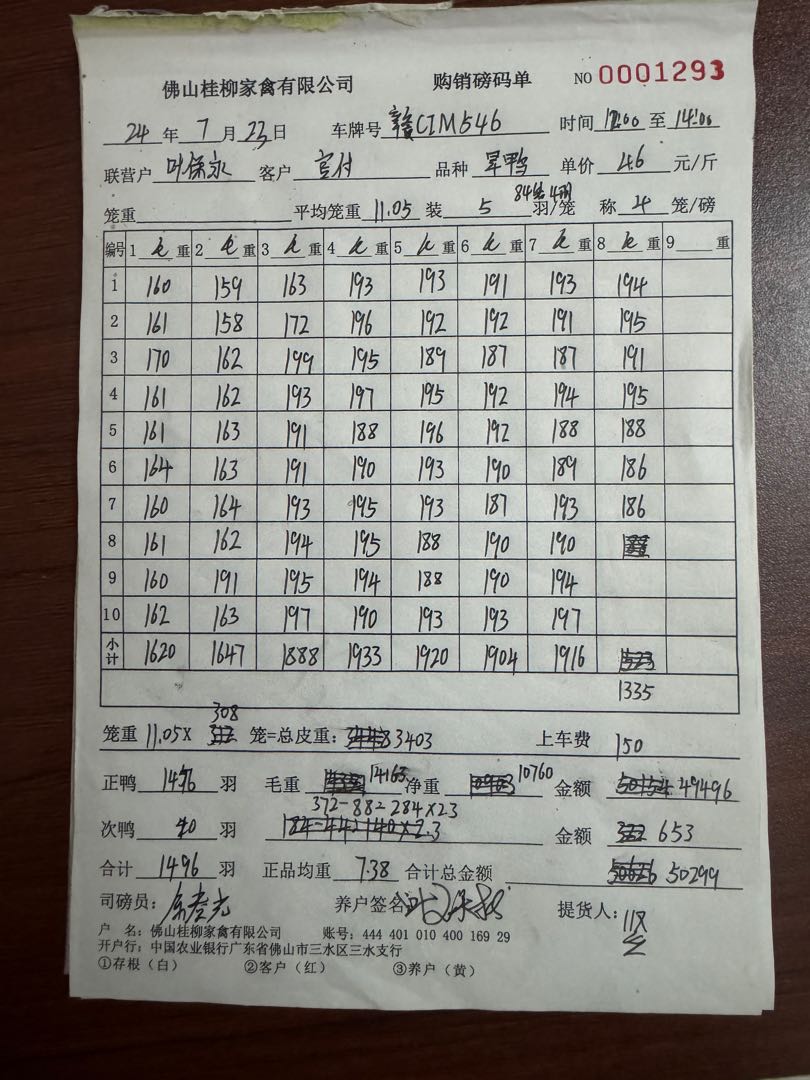 佛山桂柳家禽有限公司 购销磅码单 NO 0001293
24 年 7 月 23 日 车牌号 赣CIM546 时间 12:00 至 14:00
联营户 叶保永 客户 官付 品种 旱鸭 单价 4.6 元/斤
笼重 平均笼重 11.05 装 5 羽/笼 称 4 笼/磅
编号 1 毛 重 2 毛 重 3 毛 重 4 毛 重 5 毛 重 6 毛 重 7 毛 重 8 毛 重 9 重
1 160 159 163 193 193 191 193 194
2 161 158 172 196 192 192 191 195
3 170 162 199 195 189 187 187 191
4 161 162 193 197 195 192 194 195
5 161 163 191 188 196 192 188 188
6 164 163 191 190 193 190 189 186
7 160 164 193 195 193 187 193 186
8 161 162 194 195 188 190 190
9 160 191 195 194 188 190 194
10 162 163 197 190 193 193 197
小计 1620 1647 1888 1933 1920 1904 1916
1335
308
笼重 11.05X 笼=总皮重: 3403 上车费 150
正鸭 1476 羽 毛重 14163 净重 10760 金额 49496
372-88=284X2.3
次鸭 40 羽 金额 653
合计 1496 羽 正品均重 7.38 合计总金额 50299
司磅员: 养户签名 提货人:
户 名: 佛山桂柳家禽有限公司 账号: 444 401 010 400 169 29
开户行: 中国农业银行广东省佛山市三水区三水支行
①存根(白) ②客户(红) ③养户(黄)